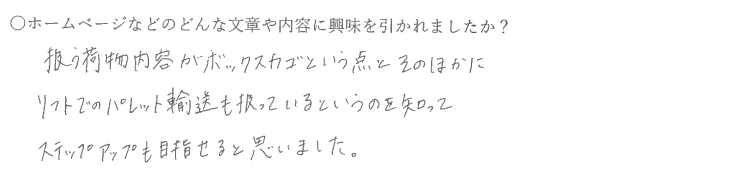 ○ホームページなどのどんな文章や内容に興味を引かれましたか？
扱う荷物内容がボックスカゴという点とそのほかに
リフトでのパレット輸送も扱っているというのを知って
ステップアップも目指せると思いました。